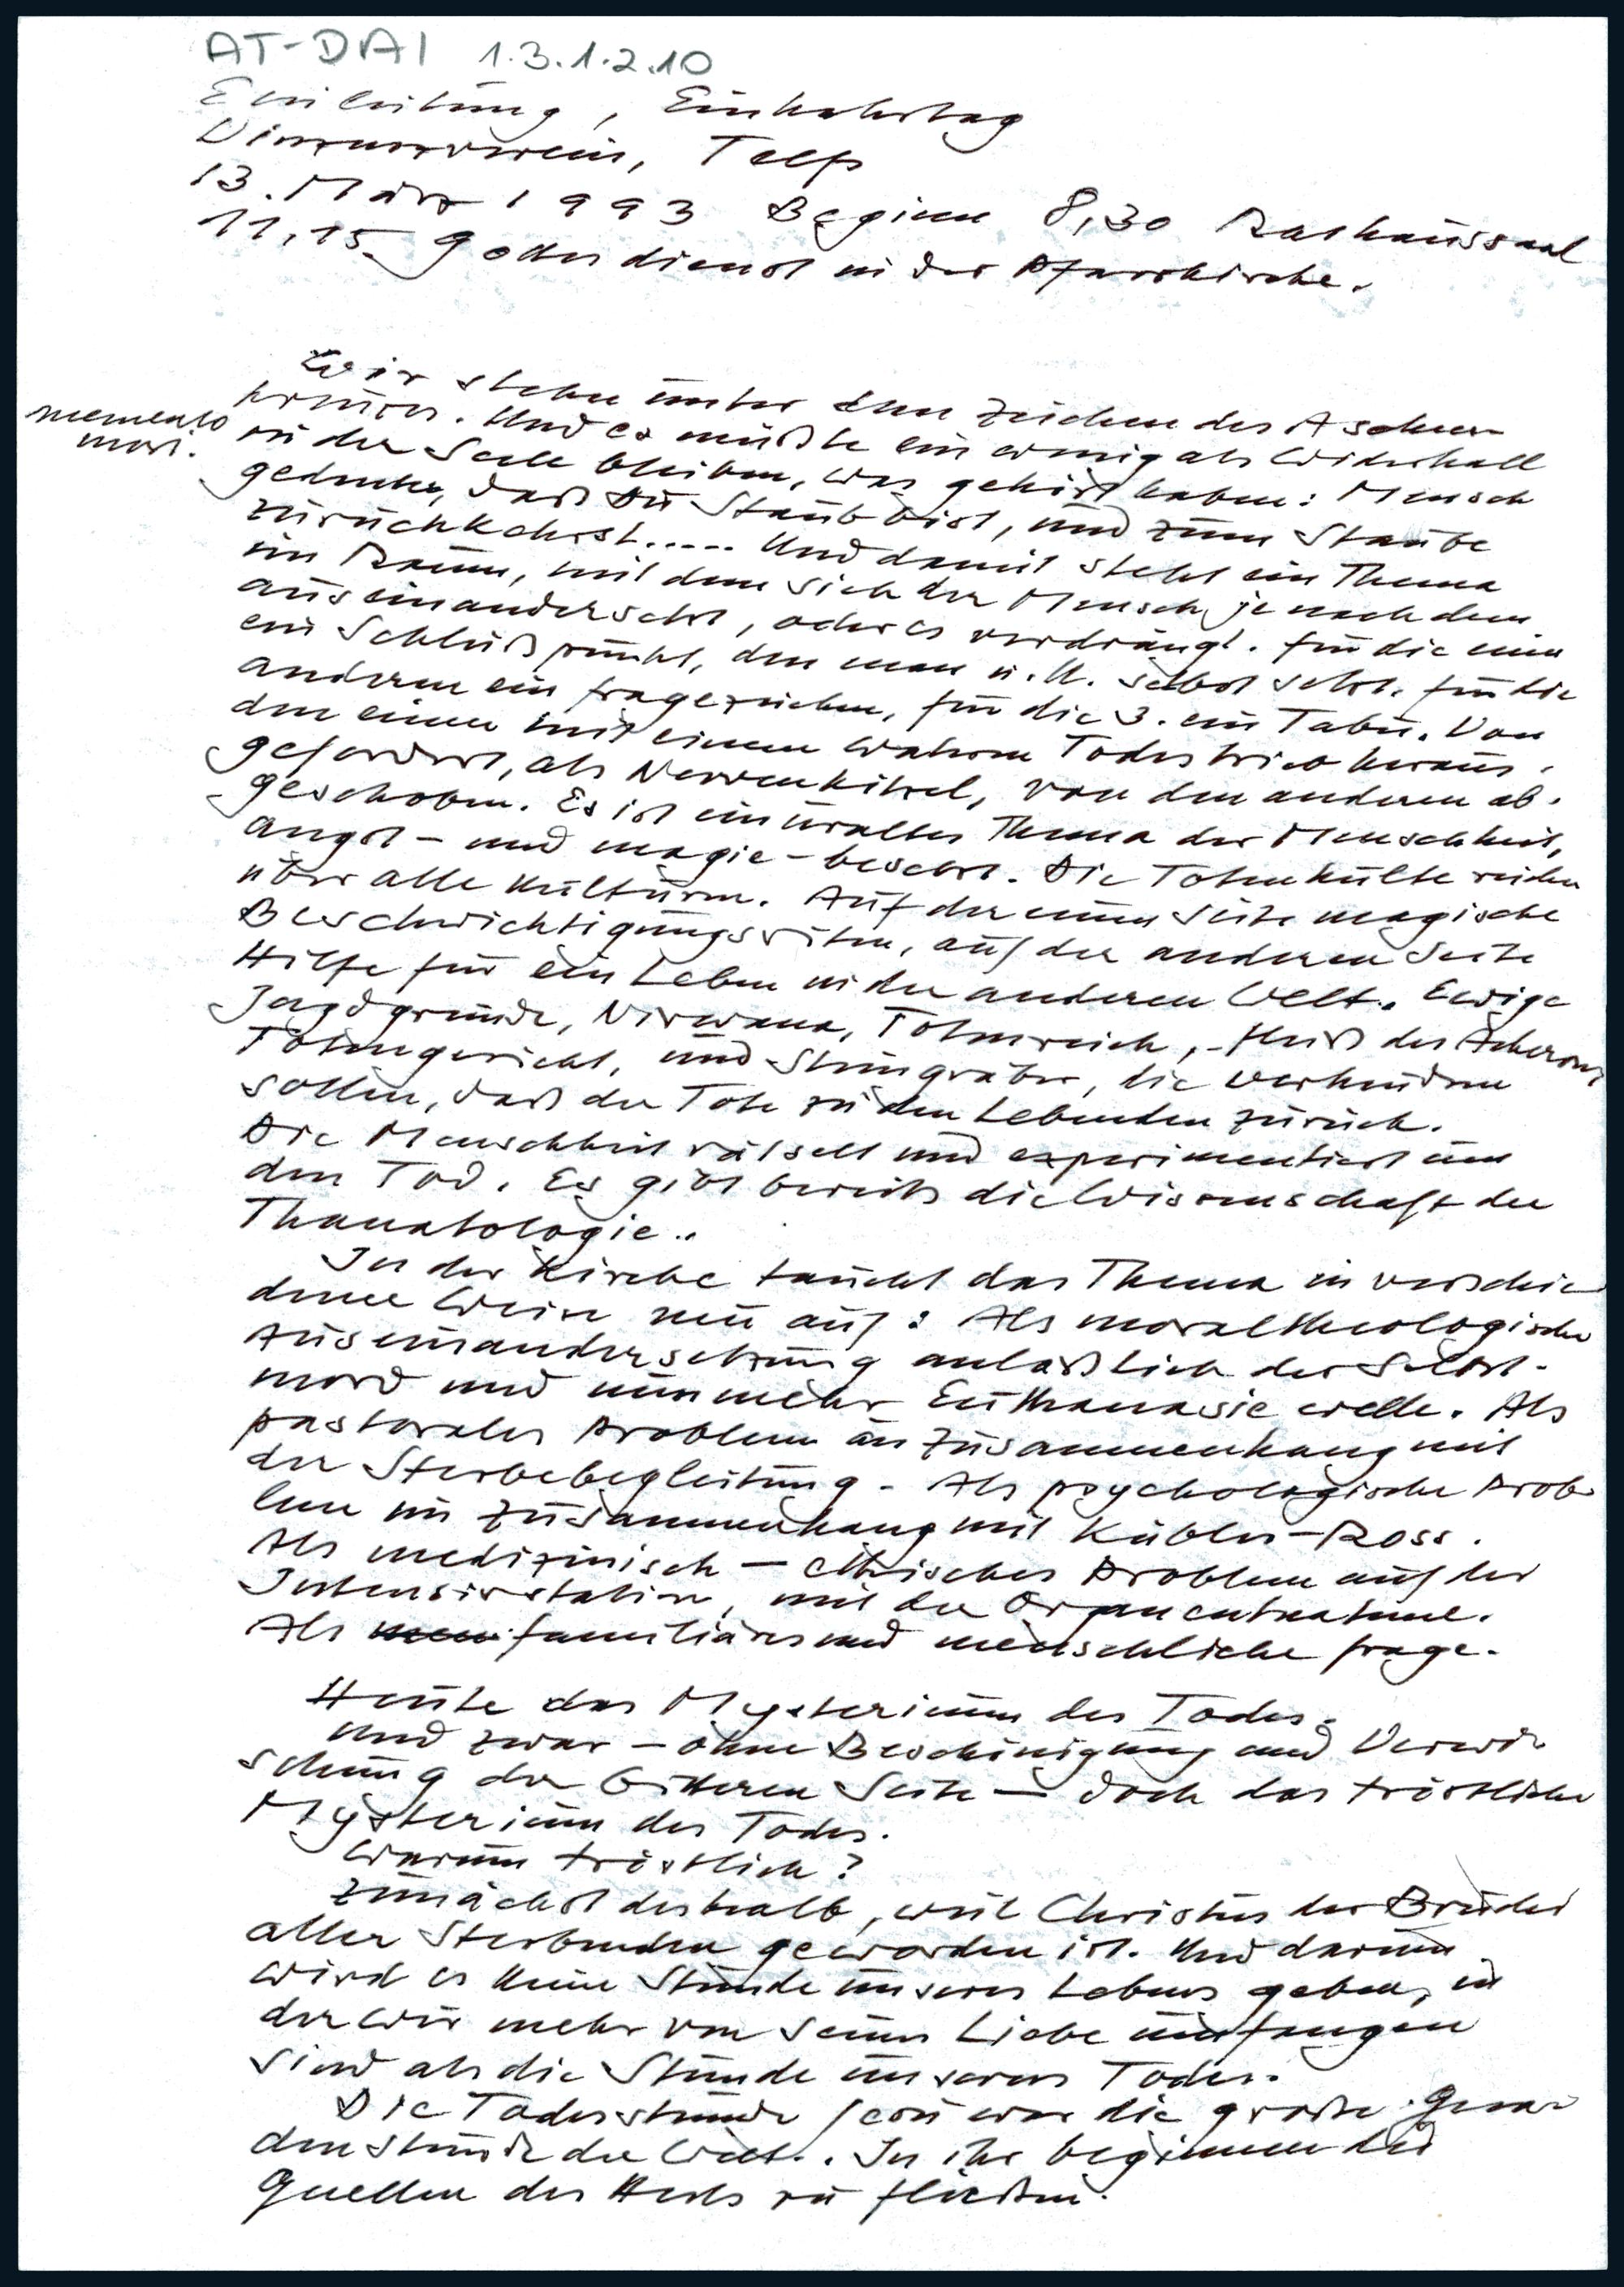 AT-DAI 1.3.1.2.10
Einleitung, Einkehrtag
Vinzenzverein, Telfs
13. März 1993 Beginn 8,30 Rathaussaal
11,15 Gottesdienst in der Pfarrkirche.
Wir stehn unter dem Zeichen des Aschen-
kreuzes. Und es müßte ein wenig als Widerhall
memento
mori.
in der Seele bleiben, was gehört haben: Mensch
gedenke, daß Du Staub bist, und zum Staube
zurückkehrst..... Und damit steht ein Thema
im Raum, mit dem sich der Mensch je nach dem
auseinandersetzt, oder es verdrängt. für die einen
ein Schlußpunkt, den man u. U. selbst setzt. für die
anderen ein fragezeichen, für die 3. ein Tabu. Von
den einen mit einem wahren Todestrieb heraus-
gefordert, als Nervenkitzel, von den anderen ab-
geschoben. Es ist ein uraltes Thema der Menschheit,
angst- und magie-besetzt. Die Totenkulte reichen
über alle Kulturen. Auf der einen Seite magische
Beschwichtigungsriten, auf der anderen Seite
Hilfe für ein Leben in der anderen Welt. Ewige
Jagdgründe, Nirwana, Totenreich, - Fluß des Acheron,
Totengericht, und Steingräber, die verhindern
sollen, daß der Tote zu den Lebenden zurück.
Die Menschheit rätselt und experimentiert um
den Tod. Es gibt bereits die Wissenschaft der
Thanatologie..
In der Kirche taucht das Thema in verschie
dener Weise neu auf: Als moraltheologische
Auseinandersetzung anläßlich der Selbst-
mord und nunmehr Euthanasie welle. Als
pastorales Problem im Zusammenhang mit
der Sterbebegleitung - Als psychologische Prob-
lem im Zusammenhang mit Kübler-Ross.
Als medizinisch - ethisches Problem auf der
Intensivstation, mit der Organentnahme.
Als familiäres und menschliche frage.
Heute das Mysterium des Todes.
Und zwar - ohne Beschönigung und Verwi-
schung der bitteren Seite - doch das tröstliche
Mysterium des Todes.
Warum tröstlich?
Zunächst deshalb, weil Christus der Bruder
aller Sterbenden geworden ist. Und darum
wird es keine Stunde unseres Lebens geben, in
der wir mehr von seiner Liebe umfangen
sind als die Stunde unseres Todes.
Die Todesstunde Jesu war die große Gna-
denstunde der Welt.. In ihr beginnen die
Quellen des Heils zu fließen.